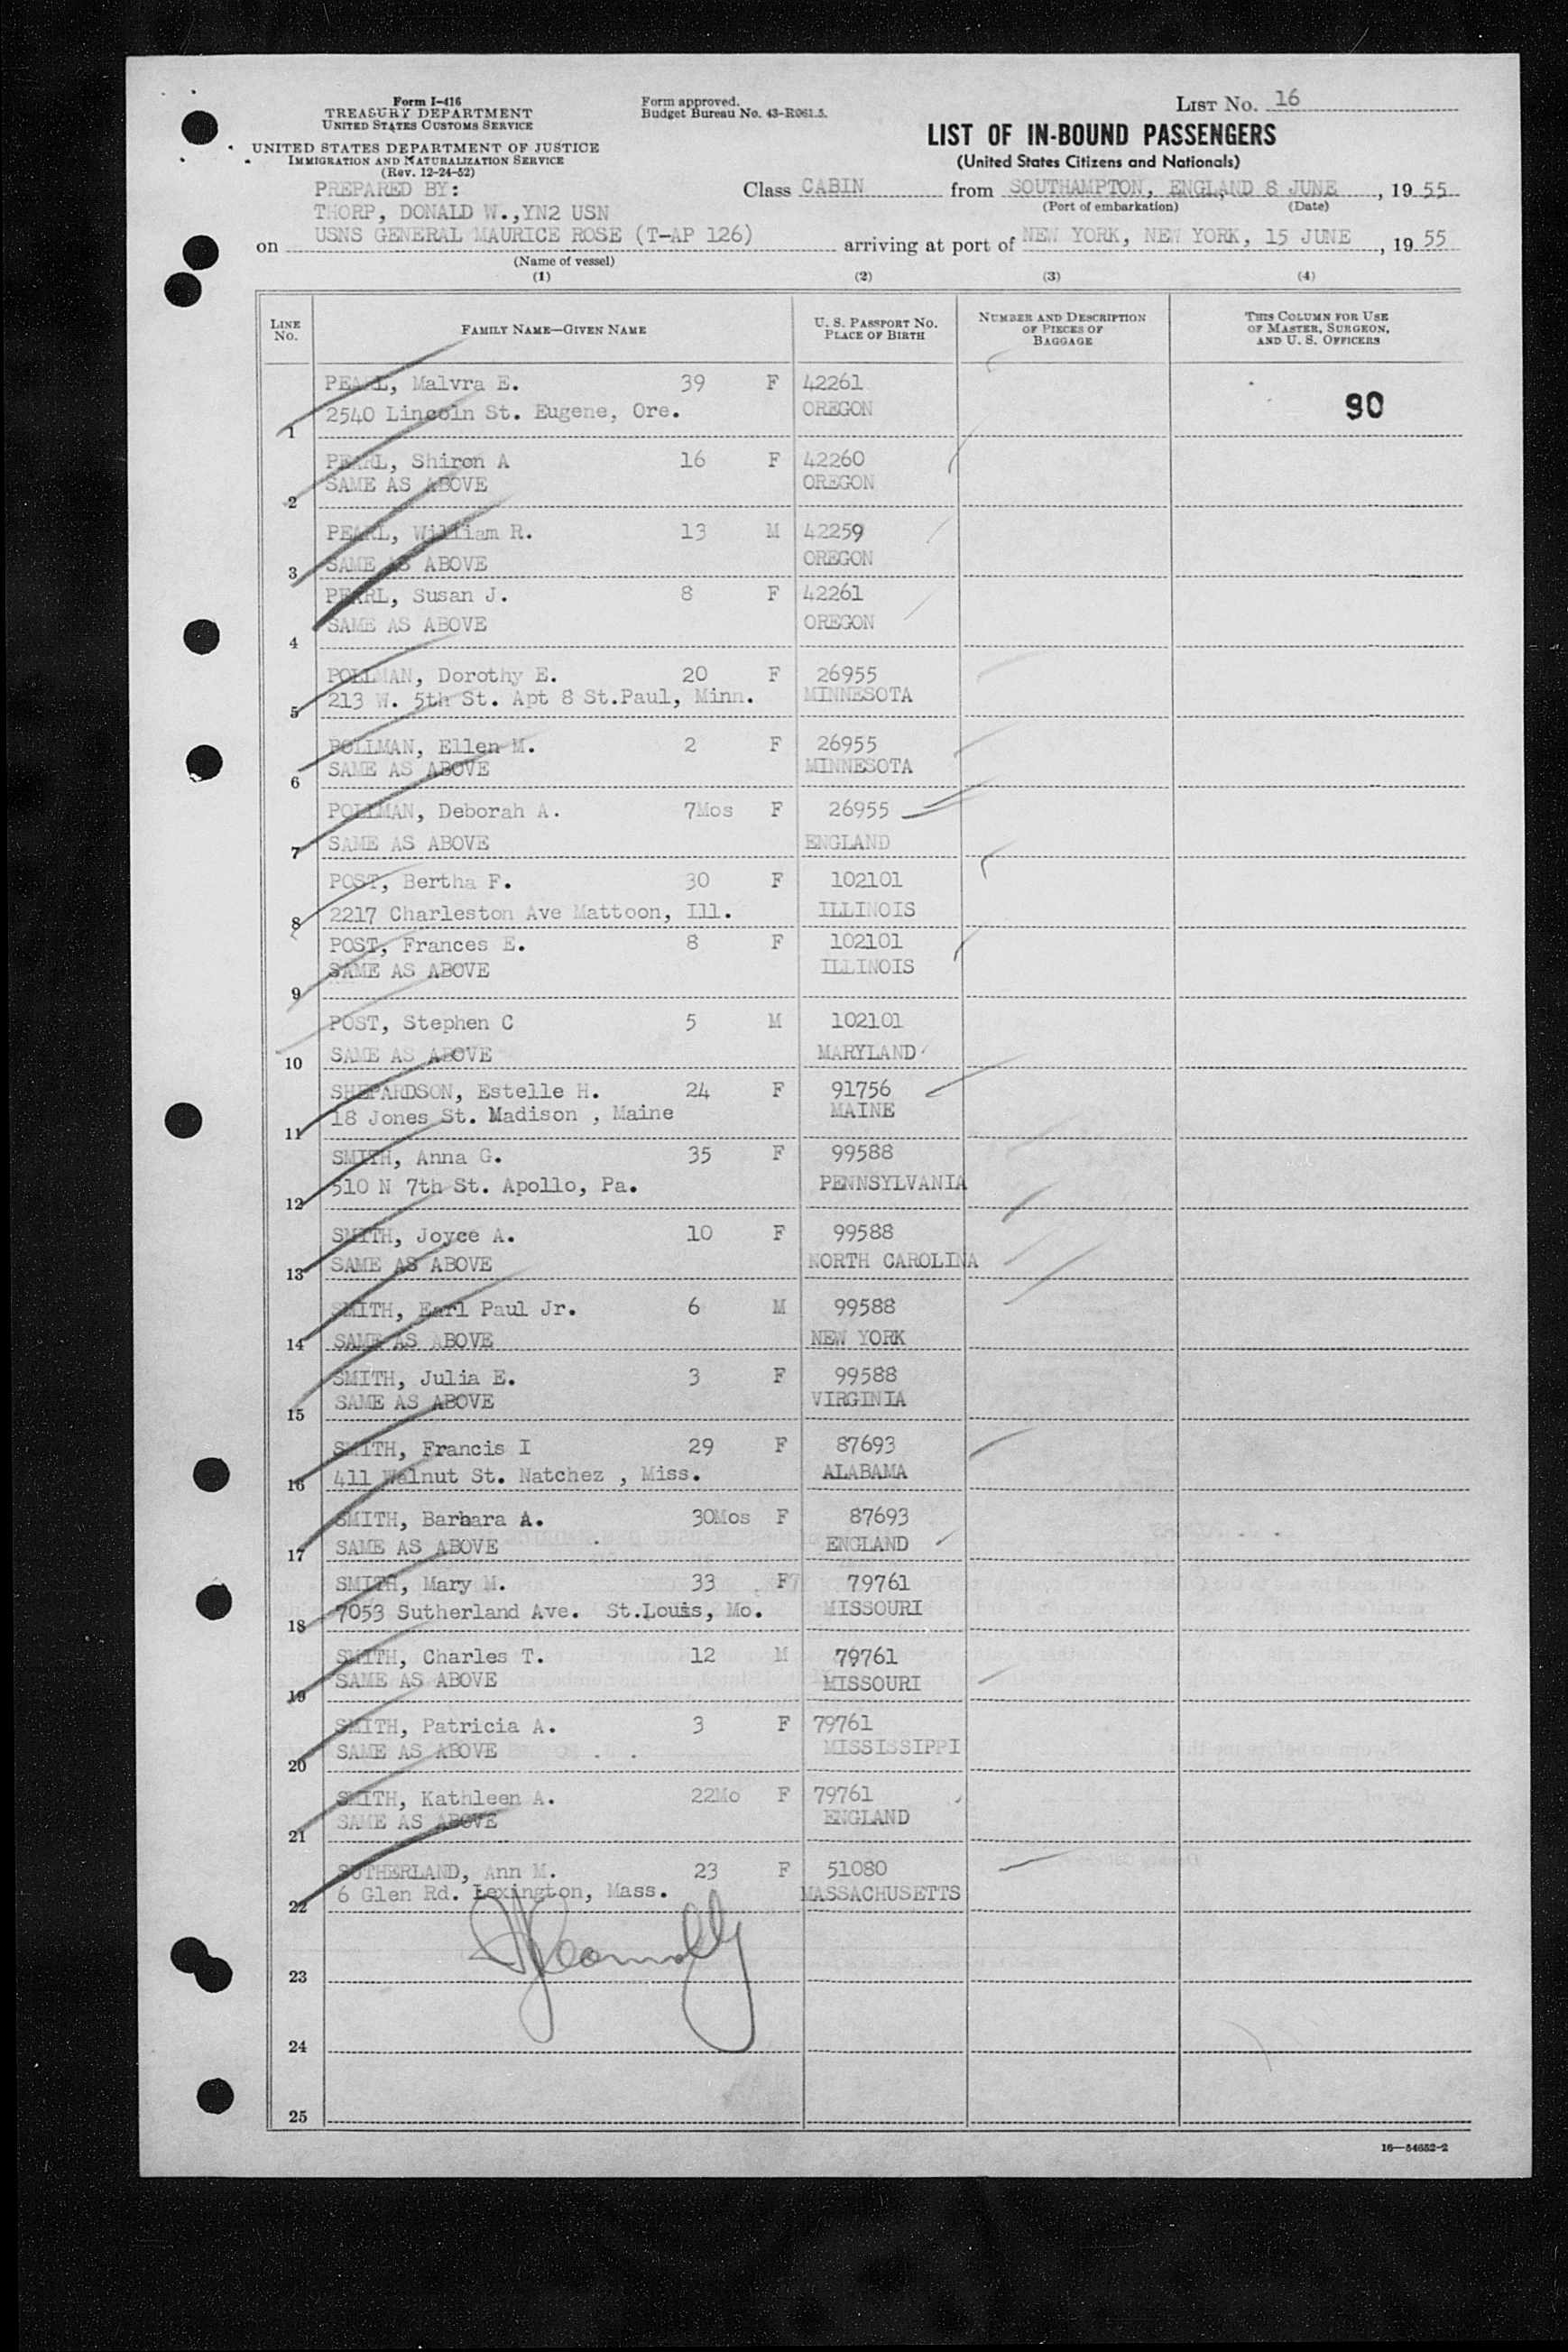 Form I-416
TREASURY DEPARTMENT
UNITED STATES CUSTOMS SERVICE
UNITED STATES DEPARTMENT OF JUSTICE
IMMIGRATION AND NATURALIZATION SERVICE
(Rev. 12-24-52)
Form approved.
Budget Bureau No. 43-R061.5.
LIST No. 16
LIST OF IN-BOUND PASSENGERS
(United States Citizens and Nationals)
PREPARED BY:
THORP, DONALD W.,YN2 USN
Class CABIN from SOUTHAMPTON, ENGLAND 8 JUNE, 19 55
(Port of embarkation) (Date)
on USNS GENERAL MAURICE ROSE (T-AP 126) arriving at port of NEW YORK, NEW YORK, 15 JUNE, 19 55
(Name of vessel)
(1) (2) (3) (4)
LINE No. FAMILY NAME—GIVEN NAME U. S. PASSPORT No. PLACE OF BIRTH NUMBER AND DESCRIPTION OF PIECES OF BAGGAGE THIS COLUMN FOR USE OF MASTER, SURGEON, AND U. S. OFFICERS
PEARL, Malvra E. 39 F 42261
90
1 2540 Lincoln St. Eugene, Ore. OREGON
PEARL, Shiron A 16 F 42260
2 SAME AS ABOVE OREGON
PEARL, William R. 13 M 42259
3 SAME AS ABOVE OREGON
PEARL, Susan J. 8 F 42261
4 SAME AS ABOVE OREGON
POLLMAN, Dorothy E. 20 F 26955
5 213 W. 5th St. Apt 8 St.Paul, Minn. MINNESOTA
POLLMAN, Ellen M. 2 F 26955
6 SAME AS ABOVE MINNESOTA
POLLMAN, Deborah A. 7Mos F 26955
7 SAME AS ABOVE ENGLAND
POST, Bertha F. 30 F 102101
8 2217 Charleston Ave Mattoon, Ill. ILLINOIS
POST, Frances E. 8 F 102101
9 SAME AS ABOVE ILLINOIS
POST, Stephen C 5 M 102101
10 SAME AS ABOVE MARYLAND
SHEPARDSON, Estelle H. 24 F 91756
11 18 Jones St. Madison , Maine MAINE
SMITH, Anna G. 35 F 99588
12 510 N 7th St. Apollo, Pa. PENNSYLVANIA
SMITH, Joyce A. 10 F 99588
13 SAME AS ABOVE NORTH CAROLINA
SMITH, Earl Paul Jr. 6 M 99588
14 SAME AS ABOVE NEW YORK
SMITH, Julia E. 3 F 99588
15 SAME AS ABOVE VIRGINIA
SMITH, Francis I 29 F 87693
16 411 Walnut St. Natchez , Miss. ALABAMA
SMITH, Barbara A. 30Mos F 87693
17 SAME AS ABOVE ENGLAND
SMITH, Mary M. 33 F 79761
18 7053 Sutherland Ave. St.Louis, Mo. MISSOURI
SMITH, Charles T. 12 M 79761
19 SAME AS ABOVE MISSOURI
SMITH, Patricia A. 3 F 79761
20 SAME AS ABOVE MISSISSIPPI
SMITH, Kathleen A. 22Mo F 79761
21 SAME AS ABOVE ENGLAND
SUTHERLAND, Ann M. 23 F 51080
22 6 Glen Rd. Lexington, Mass. MASSACHUSETTS
23
24
25
16—54652-2